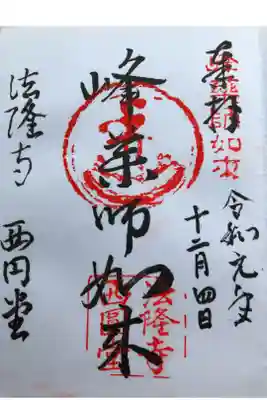 奉拝
令和元年
十二月四日
峰薬師如来
法隆寺
西円堂
法隆寺
西圓堂